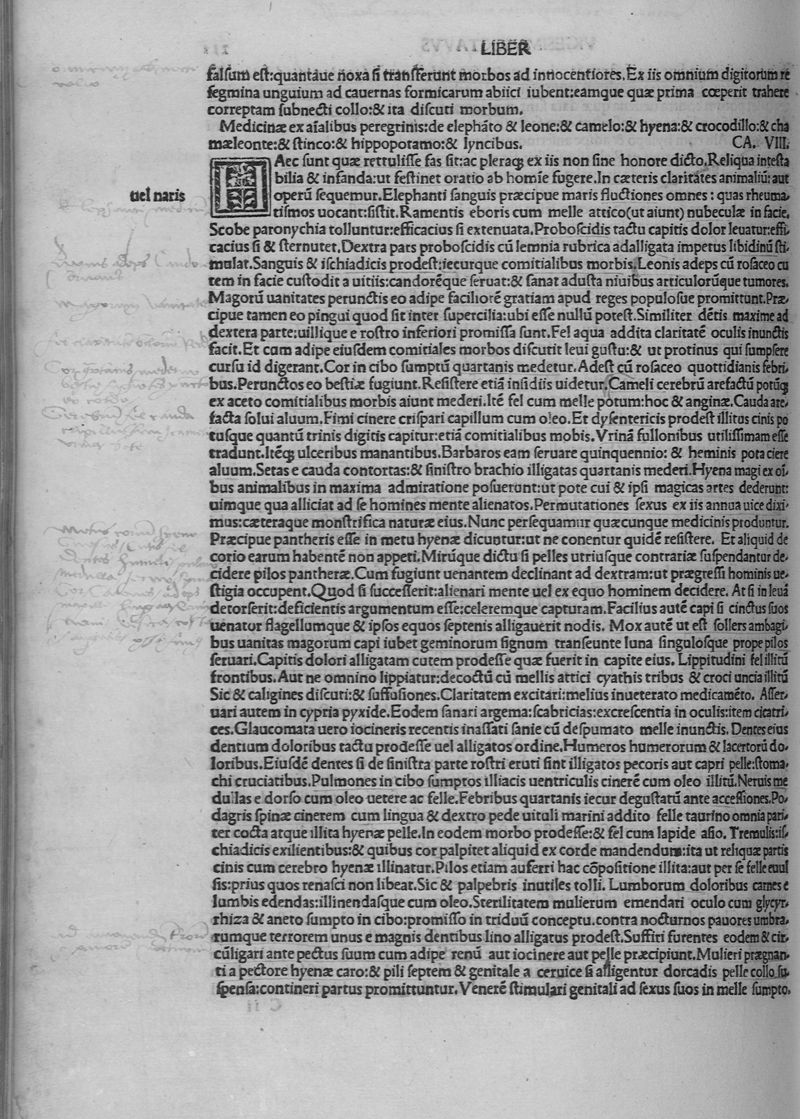 LIBER
falſum eſt:quantaue noxa ſi tranſferunt morbos ad innocentiores.Ex iis omnium digitorum re
ſegmina unguium ad cauernas formicarum abiici iubent:eamque quæ prima cœperit trahere
correptam ſubnecti collo:& ita diſcuti morbum.
Medicinæ ex aĩalibus peregrinis:de elephãto & leone:& camelo:& hyena:& crocodillo:& cha
mæleonte:& ſtinco:& hippopotamo:& lyncibus. CA. VIII.
HAec ſunt quæ rettuliſſe fas ſit:ac pleraqꝫ ex iis non ſine honore dicto,Reliqua inteſta
bilia & infanda:ut feſtinet oratio ab homĩe fugere.In cæteris claritates animaliũ:aut
uel naris
operũ ſequemur.Elephanti ſanguis præcipue maris fluctiones omnes : quas rheuma⸗
tiſmos uocant:ſiſtit.Ramentis eboris cum melle attico(ut aiunt) nubeculæ in facie.
Scobe paronychia tolluntur:efficacius ſi extenuata.Proboſcidis tactu capitis dolor leuatur:effi⸗
cacius ſi & ſternutet.Dextra pars proboſcidis cũ lemnia rubrica adalligata impetus libidinũ ſti⸗
mulat.Sanguis & iſchiadicis prodeſt:iecurque comitialibus morbis.Leonis adeps cũ roſaceo cu
tem in facie cuſtodit a uitiis:candoreque ſeruat:& ſanat aduſta niuibus articulorũque tumores.
Magorũ uanitates perunctis eo adipe faciliorẽ gratiam apud reges populoſue promittunt.Præ⸗
cipue tamen eo pingui quod ſit inter ſupercilia:ubi eſſe nullũ poteſt.Similiter dẽtis maxime ad
dextera parte:uillique e roſtro inferiori promiſſa ſunt.Fel aqua addita claritatẽ oculis inunctis
facit.Et cum adipe eiuſdem comitiales morbos diſcutit leui guſtu:& ut protinus qui ſumpſere
curſu id digerant.Cor in cibo ſumptũ quartanis medetur.Adeſt cũ roſaceo quottidianis febri⸗
bus.Perunctos eo beſtiæ fugiunt.Reſiſtere etiã inſidiis uidetur.Cameli cerebrũ arefactũ potũqꝫ
ex aceto comitialibus morbis aiunt mederi.Itẽ fel cum melle potum:hoc & anginæ.Cauda are⸗
facta ſolui aluum.Fimi cinere criſpari capillum cum oleo.Et dyſentericis prodeſt illitus cinis po
tuſque quantũ trinis digitis capitur:etiã comitialibus mobis.Vrinã fullonibus utiliſſimam eſſe
tradunt.Itẽqꝫ ulceribus manantibus.Barbaros eam ſeruare quinquennio: & heminis pota ciere
aluum.Setas e cauda contortas:& ſiniſtro brachio illigatas quartanis mederi.Hyena magi ex oĩ⸗
bus animalibus in maxima admiratione poſuerunt:ut pote cui & ipſi magicas artes dederunt:
uimque qua alliciat ad ſe homines mente alienatos.Permutationes ſexus ex iis annua uice dixi⸗
mus:cæteraque monſtrifica naturæ eius.Nunc perſequamur quæcunque medicinis produntur.
Præcipue pantheris eſſe in metu hyenæ dicuntur:ut ne conentur quidẽ reſiſtere. Et aliquid de
corio earum habentẽ non appeti.Mirũque dictu ſi pelles utriuſque contrariæ ſuſpendantur de⸗
cidere pilos pantheræ.Cum fugiunt uenantem declinant ad dextram:ut prægreſſi hominis ue⸗
ſtigia occupent.Quod ſi ſucceſſerit:alienari mente uel ex equo hominem decidere. At ſi in leuã
detorſerit:deficientis argumentum eſſe:celeremque capturam.Facilius autẽ capi ſi cinctus ſuos
uenator flagellumque & ipſos equos ſeptenis alligauerit nodis. Mox autẽ ut eſt ſollers ambagi⸗
bus uanitas magorum capi iubet geminorum ſignum tranſeunte luna ſinguloſque prope pilos
ſeruari.Capitis dolori alligatam cutem prodeſſe quæ fuerit in capite eius. Lippitudini fel illitũ
frontibus.Aut ne omnino lippiatur:decoctũ cũ mellis attici cyathis tribus & croci uncia illitũ
Sic & caligines diſcuti:& ſuffuſiones.Claritatem excitari:melius inueterato medicamẽto. Aſſer⸗
uari autem in cypria pyxide.Eodem ſanari argema:ſcabricias:excreſcentia in oculis:item cicatri⸗
ces.Glaucomata uero iocineris recentis inaſſati ſanie cũ deſpumato melle inunctis.Dentes eius
dentium doloribus tactu prodeſſe uel alligatos ordine.Humeros humerorum & lacertorũ do⸗
loribus.Eiuſdẽ dentes ſi de ſiniſtra parte roſtri eruti ſint illigatos pecoris aut capri pelle:ſtoma⸗
chi cruciatibus.Pulmones in cibo ſumptos iliacis uentriculis cinerẽ cum oleo illitũ.Neruis me
dullas e dorſo cum oleo uetere ac felle.Febribus quartanis iecur deguſtatũ ante acceſſiones.Po⸗
dagris ſpinæ cinerem cum lingua & dextro pede uituli marini addito felle taurino omnia pari⸗
ter cocta atque illita hyenæ pelle.In eodem morbo prodeſſe:& fel cum lapide aſio. Tremulis:iſ⸗
chiadicis exilientibus:& quibus cor palpitet aliquid ex corde mandendum:ita ut reliquæ partis
cinis cum cerebro hyenæ illinatur.Pilos etiam auferri hac cõpoſitione illita:aut per ſe felle euul
ſis:prius quos renaſci non libeat.Sic & palpebris inutiles tolli. Lumborum doloribus carnes e
lumbis edendas:illinendaſque cum oleo.Sterilitatem mulierum emendari oculo cum glycyr⸗
rhiza & aneto ſumpto in cibo:promiſſo in triduũ conceptu.contra nocturnos pauores umbra⸗
rumque terrorem unus e magnis dentibus lino alligatus prodeſt.Suffiri furentes eodem & cir⸗
cũligari ante pectus ſuum cum adipe renũ aut iocinere aut pelle præcipiunt.Mulieri prægnan⸗
ti a pectore hyenæ caro:& pili ſeptem & genitale a ceruice ſi alligentur dorcadis pelle collo ſu⸗
ſpenſa:contineri partus promittuntur.Venerẽ ſtimulari genitali ad ſexus ſuos in melle ſumpto.